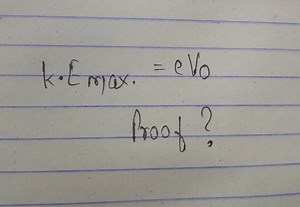 K.E max. = eV₀
Proof ?